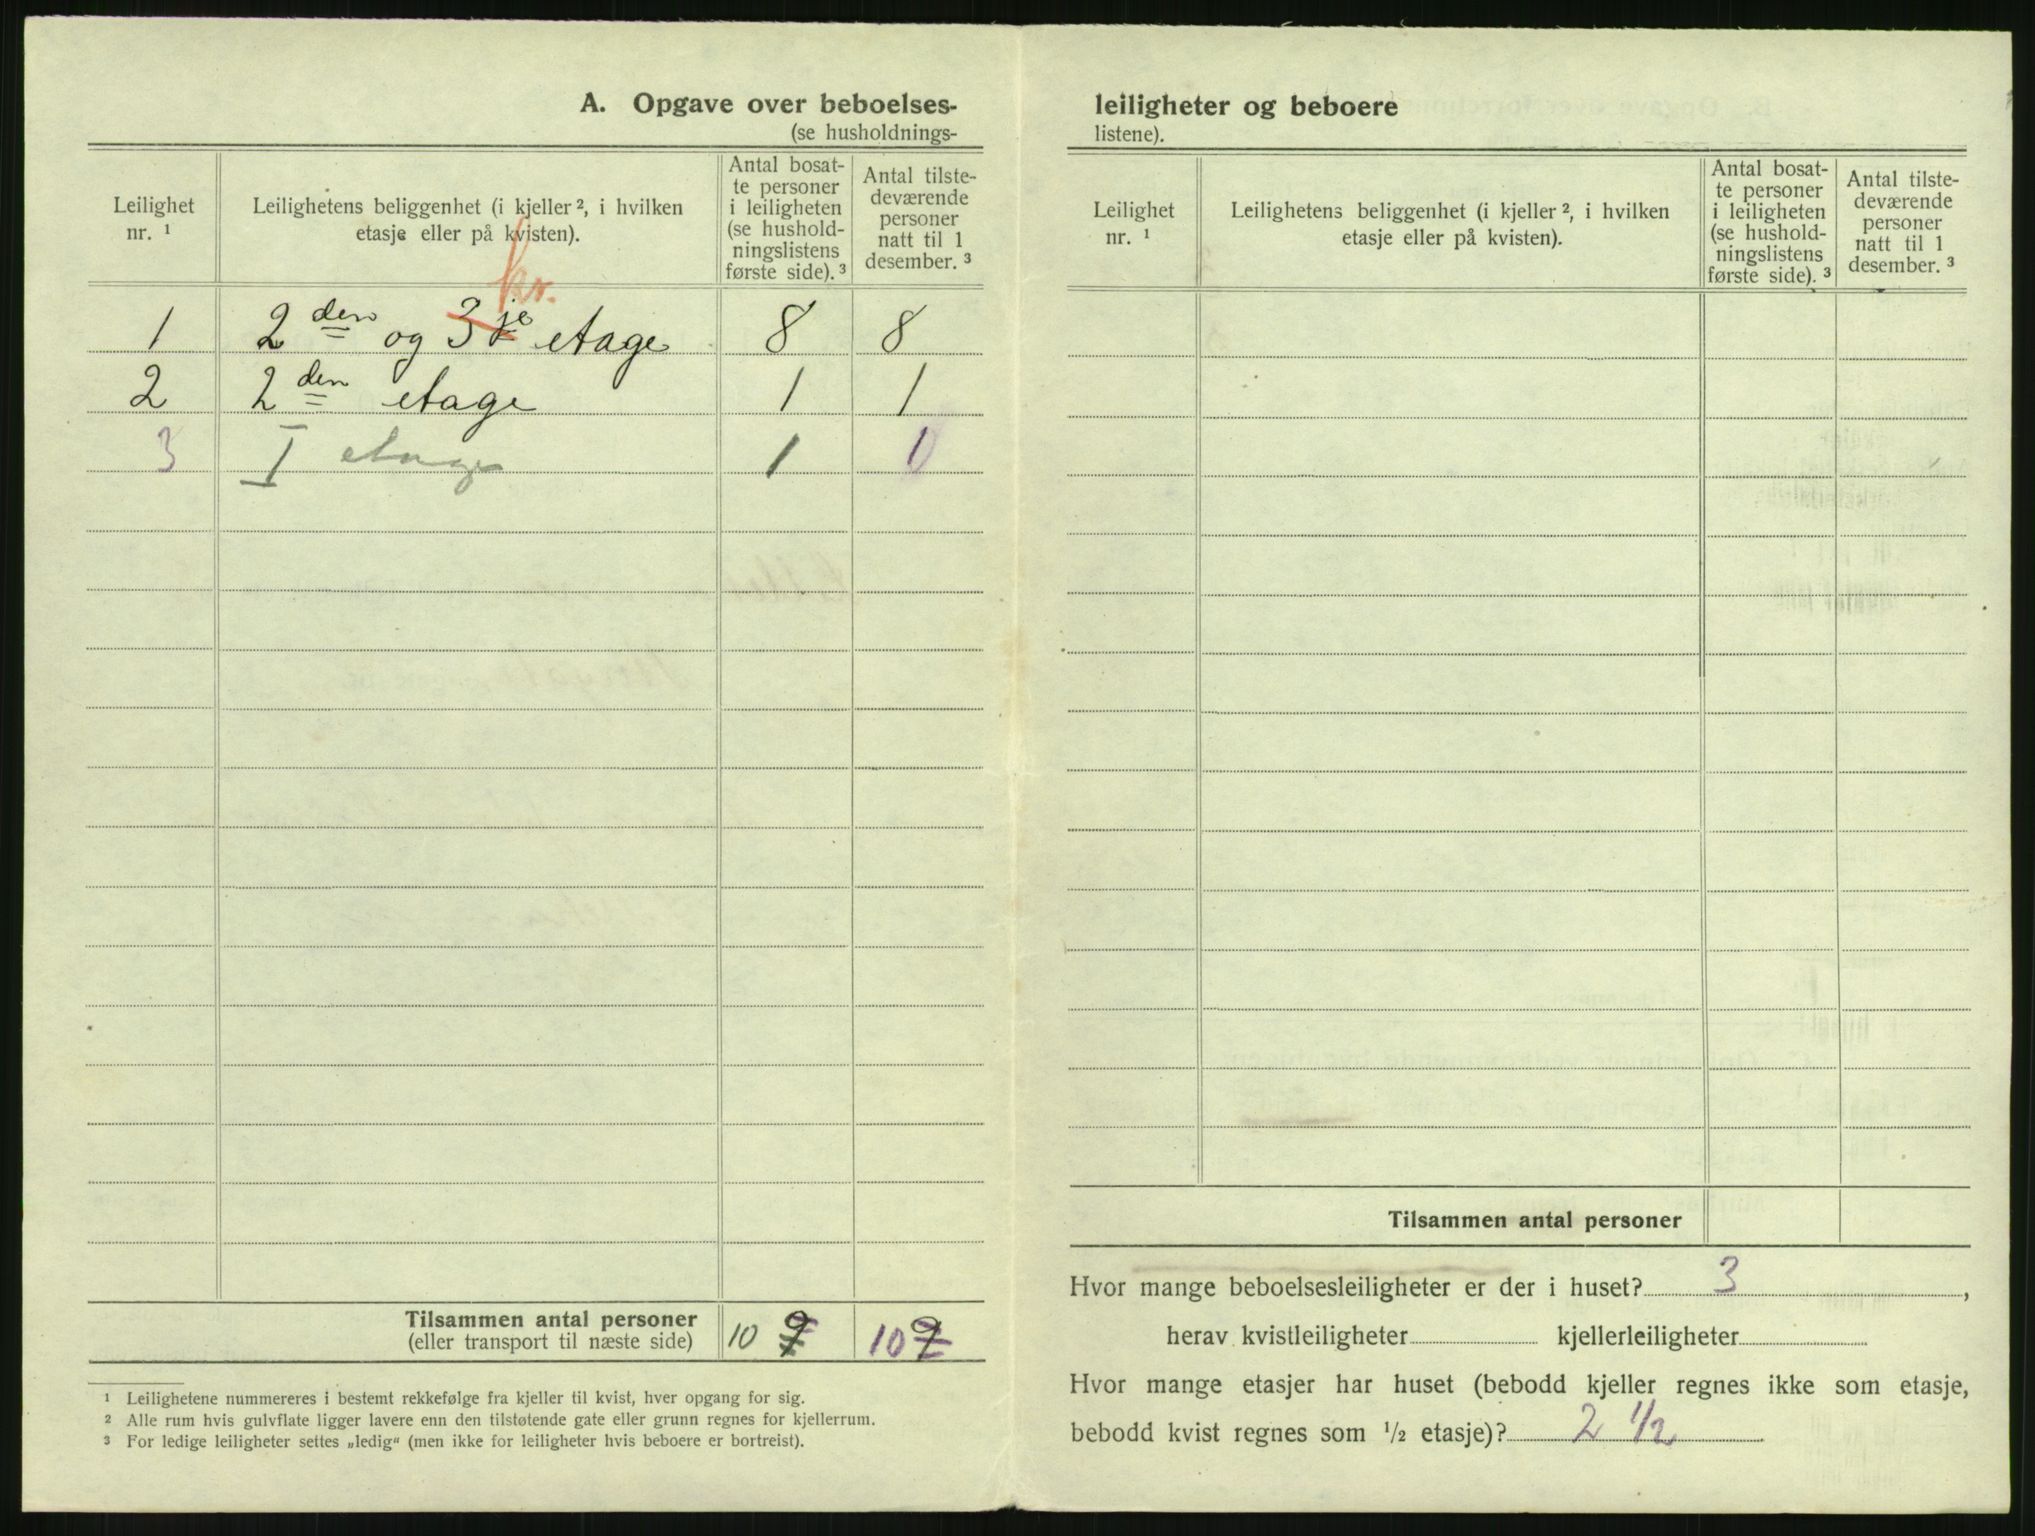 A. Opgave over beboelses-
(se husholdnings-
Leilighet
nr. 1
Leilighetens beliggenhet (i kjeller 2, i hvilken
etasje eller på kvisten).
Antal bosat-
te personer
i leiligheten
(se hushold-
ningslistens
første side). 3
Antal tilste-
deværende
personer
natt til 1
desember. 3
kv.
1 2den og 3je etage 8 8
2 2den etage 1 1
3 I etage 1
Tilsammen antal personer
(eller transport til næste side)
10 9 10 9
1 Leilighetene nummereres i bestemt rekkefølge fra kjeller til kvist, hver opgang for sig.
2 Alle rum hvis gulvflate ligger lavere enn den tilstøtende gate eller grunn regnes for kjellerrum.
3 For ledige leiligheter settes „ledig“ (men ikke for leiligheter hvis beboere er bortreist).
leiligheter og beboere
listene).
Leilighet
nr. 1
Leilighetens beliggenhet (i kjeller 2, i hvilken
etasje eller på kvisten).
Antal bosat-
te personer
i leiligheten
(se hushold-
ningslistens
første side). 3
Antal tilste-
deværende
personer
natt til 1
desember. 3
Tilsammen antal personer
Hvor mange beboelsesleiligheter er der i huset? 3,
herav kvistleiligheter kjellerleiligheter
Hvor mange etasjer har huset (bebodd kjeller regnes ikke som etasje,
bebodd kvist regnes som 1/2 etasje)? 2 1/2